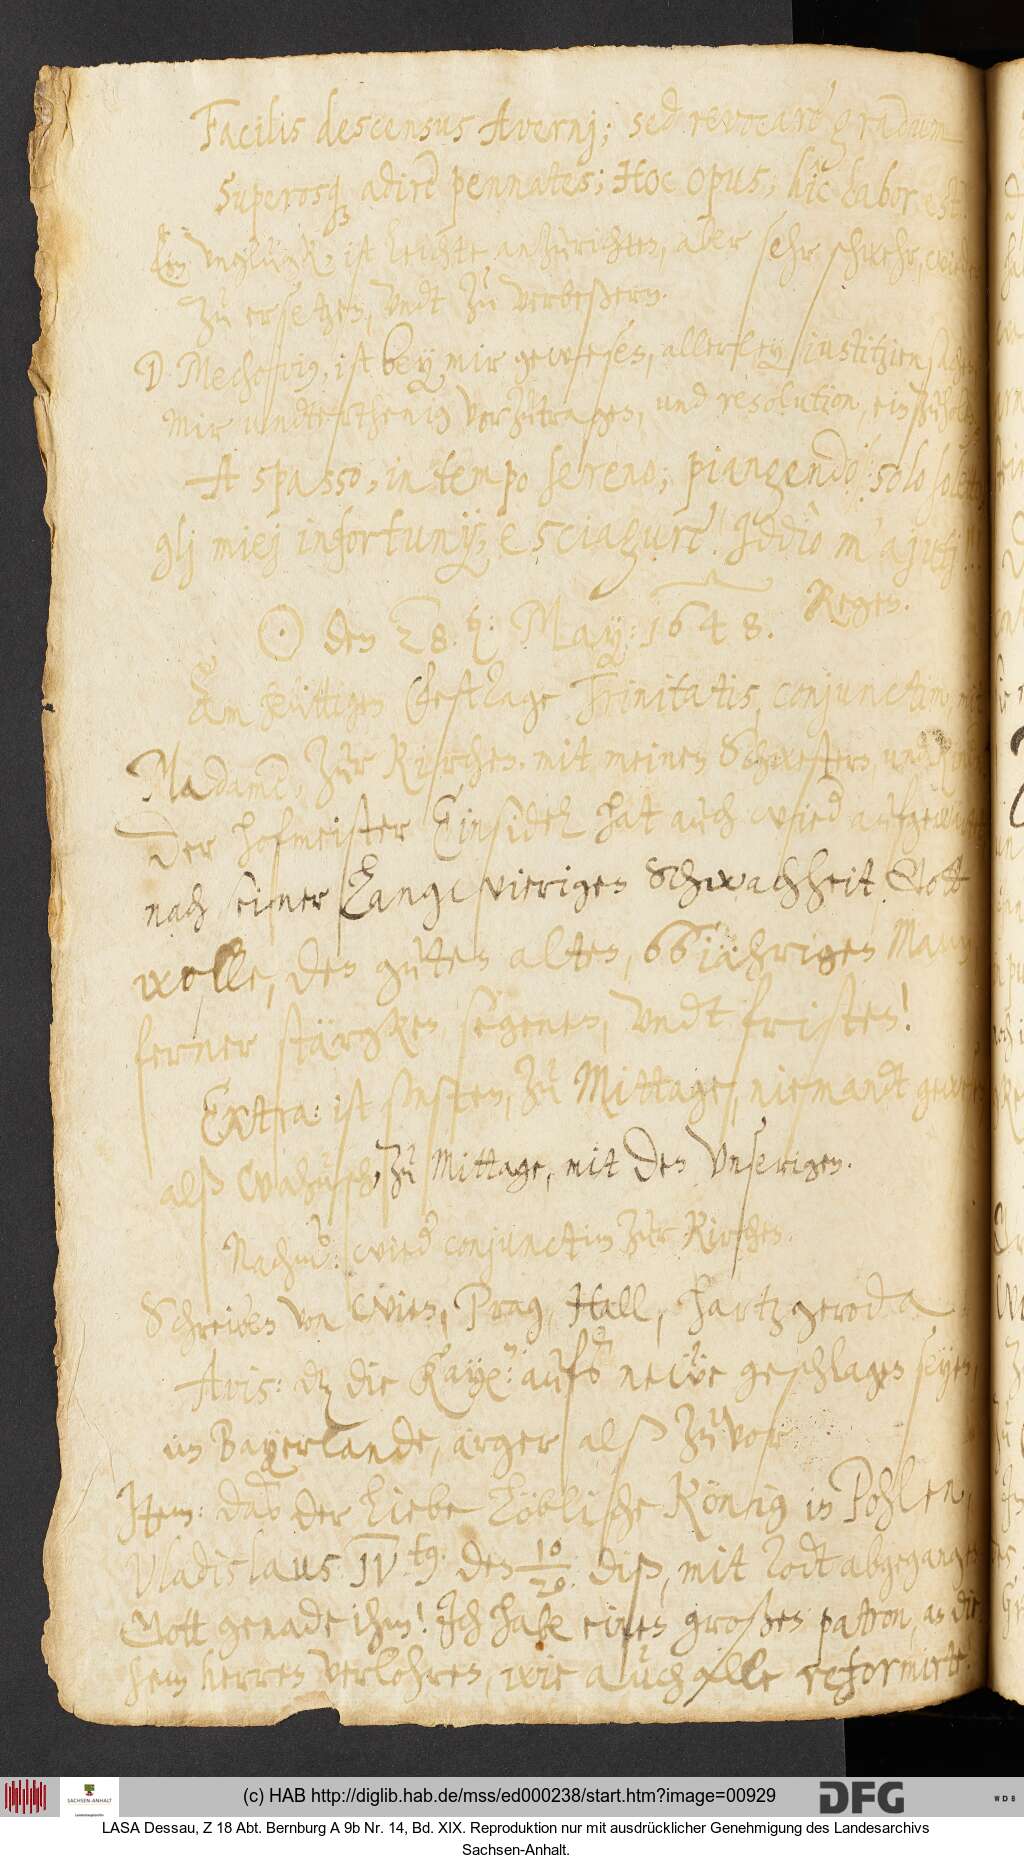 Facilis descensus Avernj; sed revocare gradum
Superosq adire pennates; Hoc opus, hic labor est.
Ein Unglück, ist leichte anzurichten, aber sehr schwehr, wieder
zu ersetzen, undt zu verbeßern.
D. Mechovius, ist bey mir gewesen, allerley iustitzien sachen
mir undterthenig vorzutragen, und resolution, einzuholen
A spasso, in tempo sereno; piangendo solo soletto
glj miej infortunij, e sciagure! Iddio m'ajutj!
☉ den 28. May: 1648. Regen.
Am heüttigen Festtage Trinitatis, conjunctim mit
Madame, zur Kirchen. mit meinen Schwestern, und
Der hofmeister Einsidel hat auch wied aufgewartet
nach seiner Langwierigen Schwachheit. Gott
wolle, den guten alten, 66iährigen Mann
ferner stärgken segenen, undt fristen!
Extra: ist sonsten, zu Mittage, niemandt gewesen
alß zu Mittage, mit den Unserigen.
Nachm: wied conjunctim zur Kirchen.
Schreiben von Wien, Prag, Hall, Hartzgeroda
Avis: dz die Kay: aufs neüe geschlagen seyen,
in Bayerlande, ärger alß zuvor
Item: das der Liebe Löbliche König in Pohlen,
Vladislaus IV. den 10/20. diß, mit Todt abgegangen
Gott genade ihm! Ich habe einen großen patron, an die
sem herren verlohren, wie auch alle reformirte.
(c) HAB http://diglib.hab.de/mss/ed000238/start.htm?image=00929
SACHSEN-ANHALT
DFG
WDB
LASA Dessau, Z 18 Abt. Bernburg A 9b Nr. 14, Bd. XIX. Reproduktion nur mit ausdrücklicher Genehmigung des Landesarchivs
Sachsen-Anhalt.